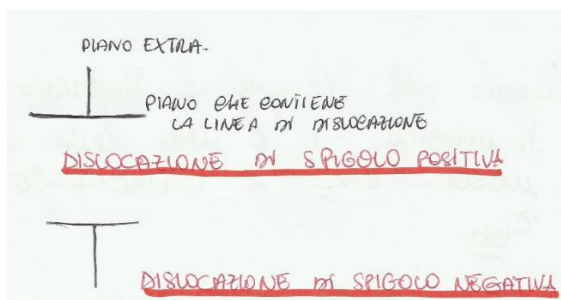 PIANO EXTRA.
PIANO CHE CONTIENE
LA LINEA DI DISLOCAZIONE
DISLOCAZIONE DI SPIGOLO POSITIVA
DISLOCAZIONE DI SPIGOLO NEGATIVA